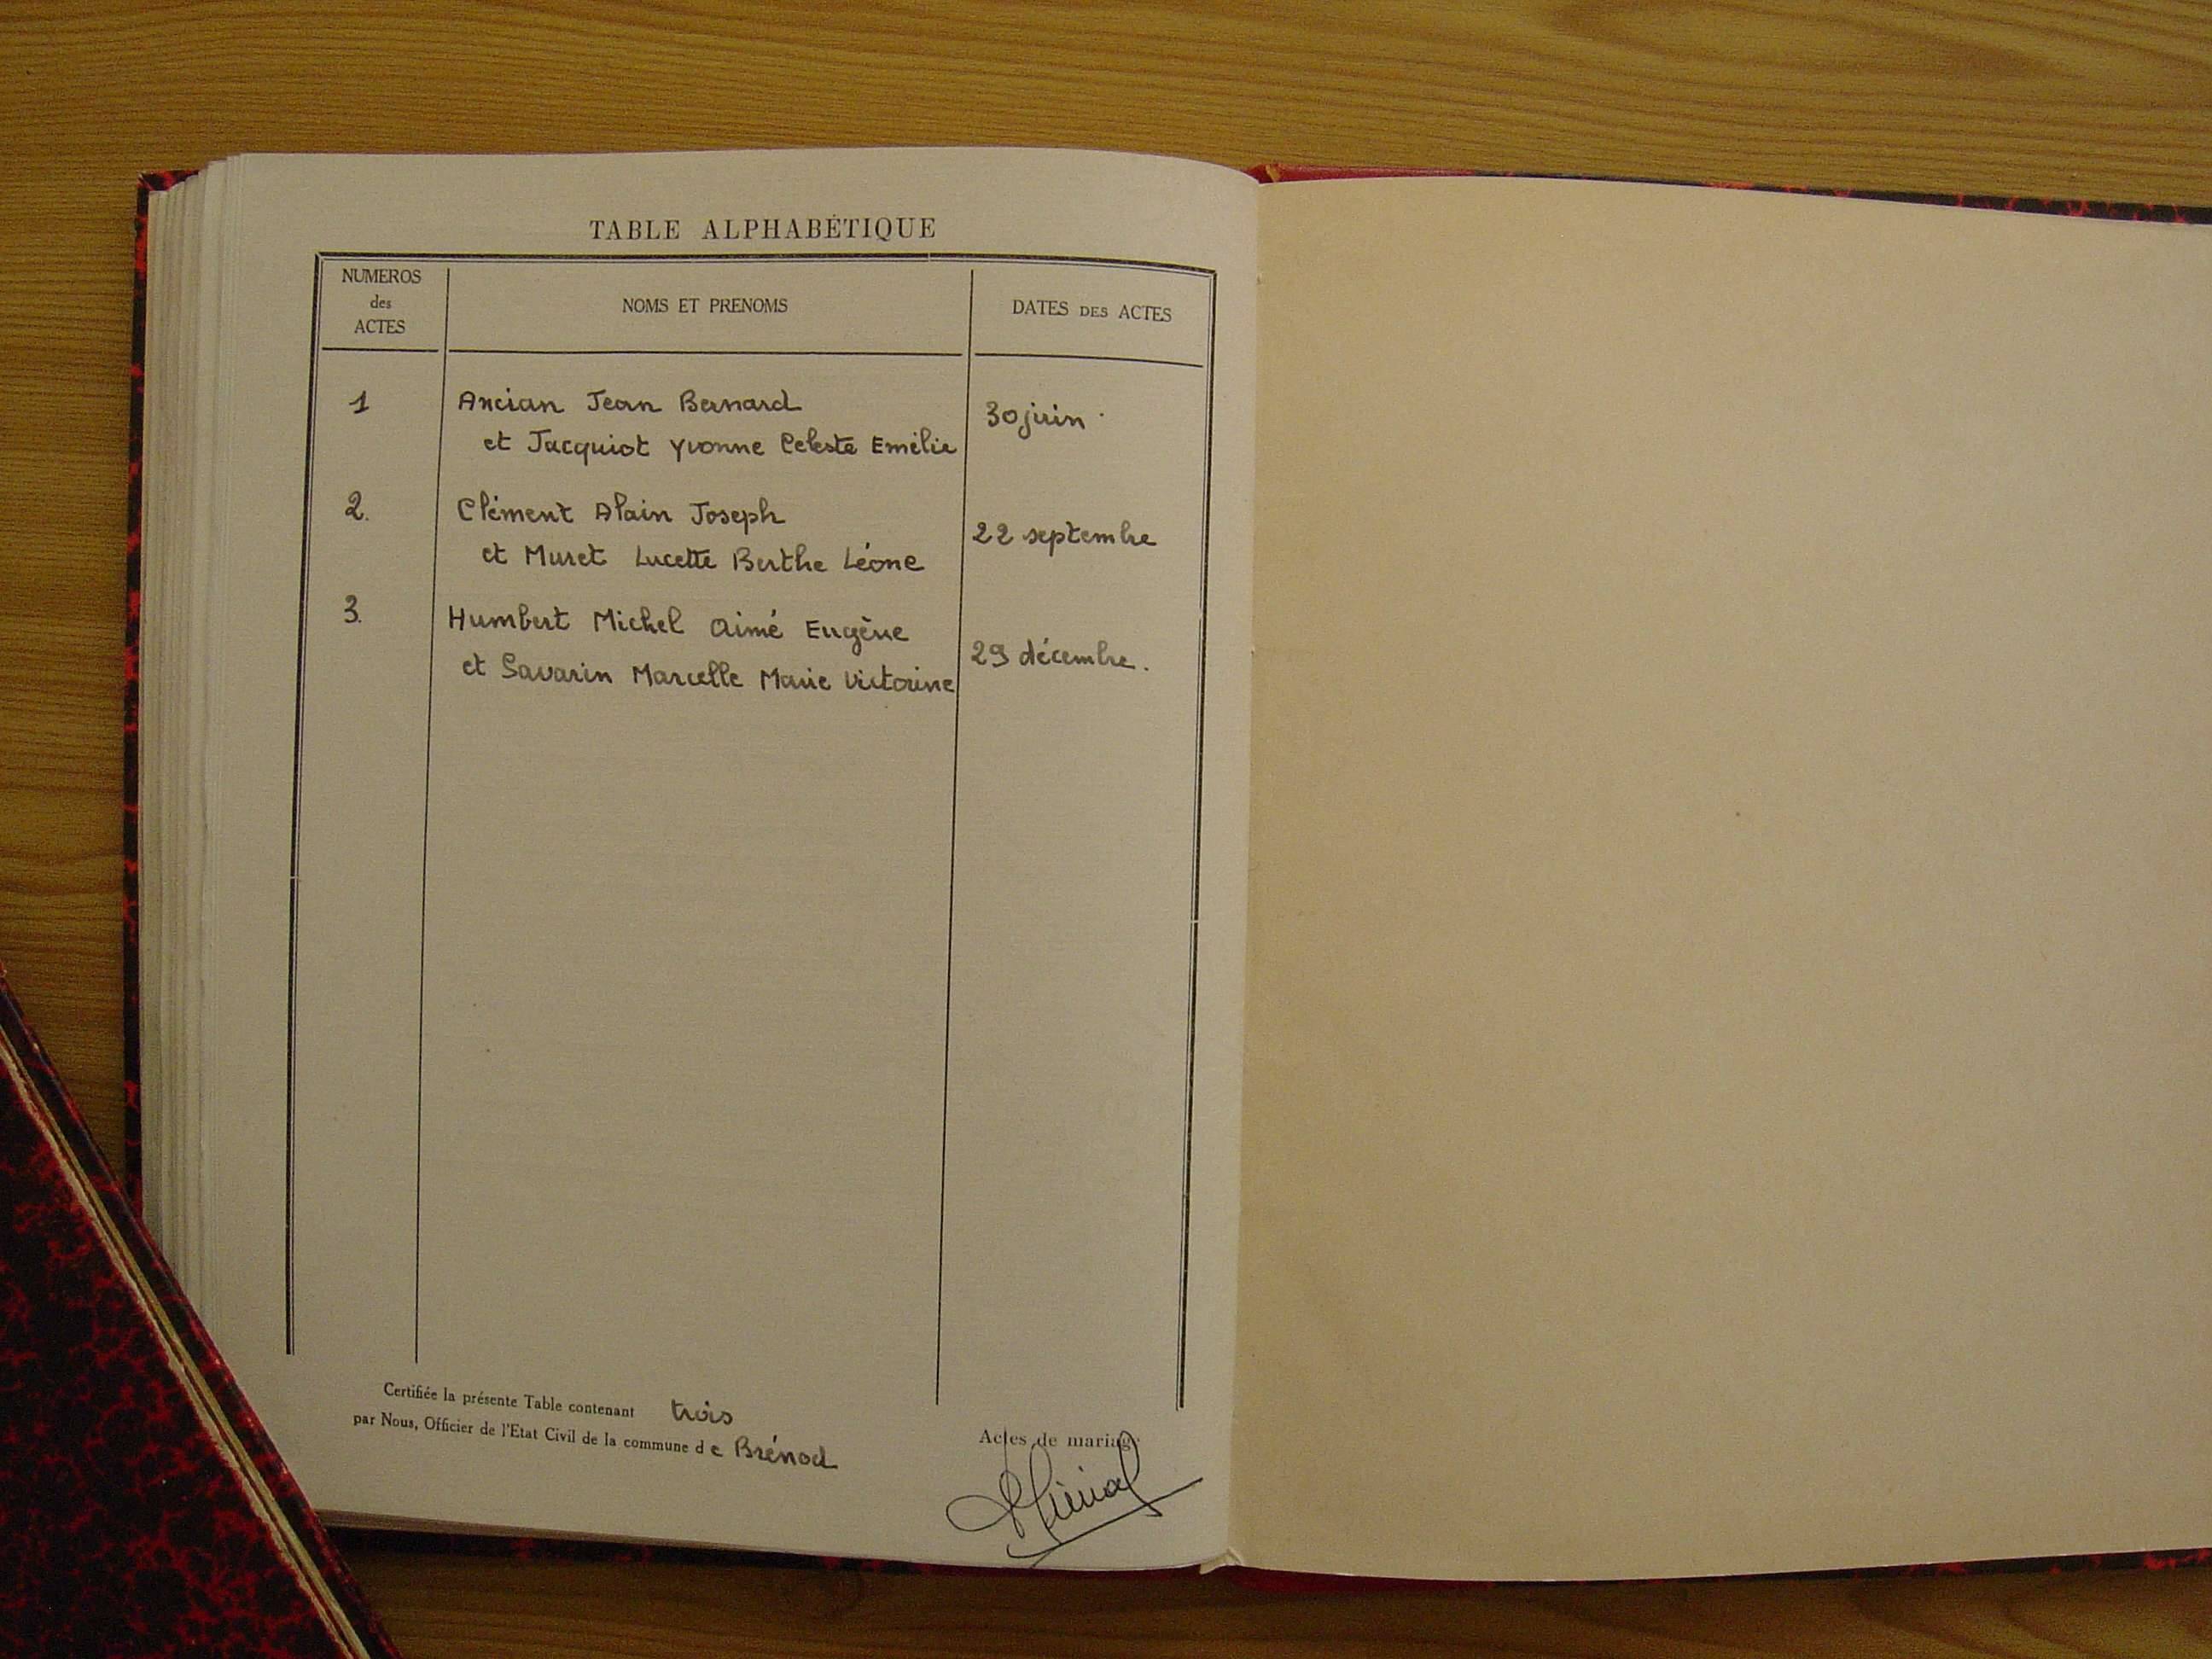 TABLE ALPHABÉTIQUE
NUMEROS
des
ACTES
NOMS ET PRENOMS
DATES DES ACTES
1
Ancian Jean Bernard
et Jacquiot Yvonne Celeste Emélie
30 juin
2.
Clément Alain Joseph
et Muret Lucette Berthe Léone
22 septembre
3.
Humbert Michel Aimé Eugène
et Savarin Marcelle Marie Victorine
29 décembre.
Certifiée la présente Table contenant trois
Actes de mariage
par Nous, Officier de l'Etat Civil de la commune de Brénod